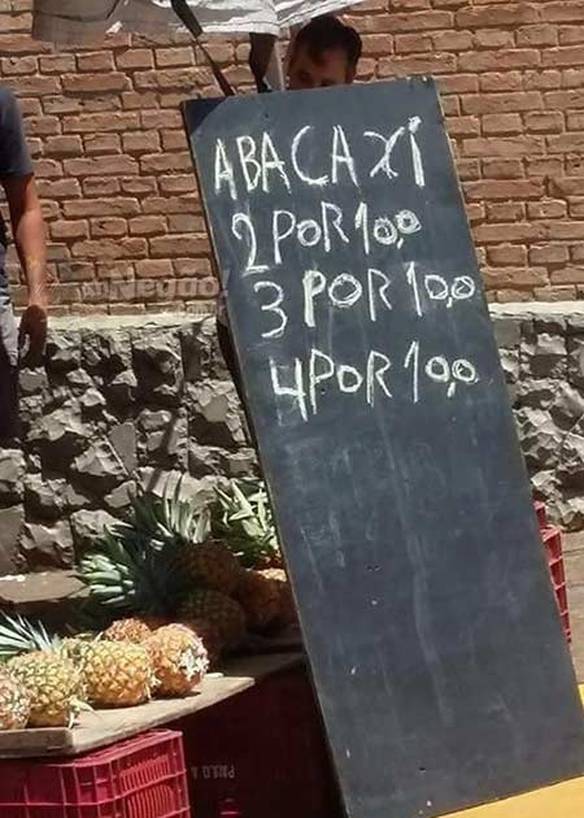 ABACAXÍ
2 POR 10,0
3 POR 10,0
4 POR 10,0
Negão!